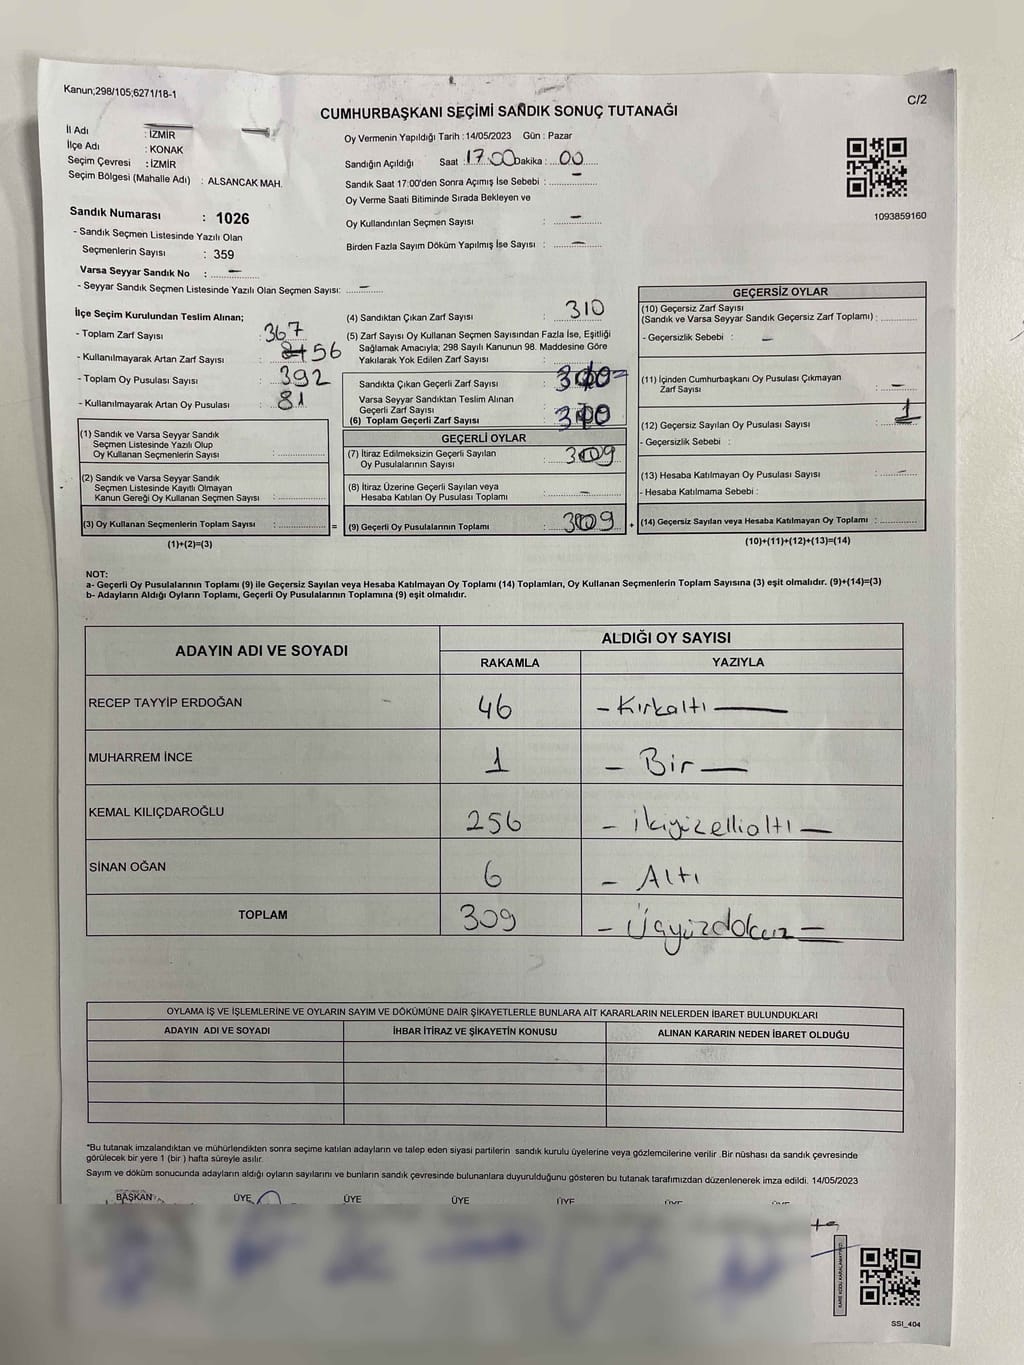 Kanun;298/105;6271/18-1
C/2
CUMHURBAŞKANI SEÇİMİ SANDIK SONUÇ TUTANAĞI
İl Adı : İZMİR
İlçe Adı : KONAK
Seçim Çevresi : İZMİR
Seçim Bölgesi (Mahalle Adı) : ALSANCAK MAH.
Sandık Numarası : 1026
- Sandık Seçmen Listesinde Yazılı Olan
Seçmenlerin Sayısı : 359
Varsa Seyyar Sandık No : –
- Seyyar Sandık Seçmen Listesinde Yazılı Olan Seçmen Sayısı: –
Oy Vermenin Yapıldığı Tarih : 14/05/2023 Gün : Pazar
Sandığın Açıldığı Saat : 17.00 Dakika : 00
Sandık Saat 17:00'den Sonra Açımış İse Sebebi : –
Oy Verme Saati Bitiminde Sırada Bekleyen ve
Oy Kullandırılan Seçmen Sayısı : –
Birden Fazla Sayım Döküm Yapılmış İse Sayısı : –
1093859160
İlçe Seçim Kurulundan Teslim Alınan;
- Toplam Zarf Sayısı : 367
- Kullanılmayarak Artan Zarf Sayısı : 56
- Toplam Oy Pusulası Sayısı : 392
- Kullanılmayarak Artan Oy Pusulası : 81
(1) Sandık ve Varsa Seyyar Sandık
Seçmen Listesinde Yazılı Olup
Oy Kullanan Seçmenlerin Sayısı :
(2) Sandık ve Varsa Seyyar Sandık
Seçmen Listesinde Kayıtlı Olmayan
Kanun Gereği Oy Kullanan Seçmen Sayısı :
(3) Oy Kullanan Seçmenlerin Toplam Sayısı :
=
(1)+(2)=(3)
(4) Sandıktan Çıkan Zarf Sayısı : 310
(5) Zarf Sayısı Oy Kullanan Seçmen Sayısından Fazla İse, Eşitliği
Sağlamak Amacıyla; 298 Sayılı Kanunun 98. Maddesine Göre
Yakılarak Yok Edilen Zarf Sayısı :
Sandıkta Çıkan Geçerli Zarf Sayısı :
Varsa Seyyar Sandıktan Teslim Alınan
Geçerli Zarf Sayısı :
(6) Toplam Geçerli Zarf Sayısı :
GEÇERLİ OYLAR
(7) İtiraz Edilmeksizin Geçerli Sayılan
Oy Pusulalarının Sayısı : 309
(8) İtiraz Üzerine Geçerli Sayılan veya
Hesaba Katılan Oy Pusulası Toplamı : –
(9) Geçerli Oy Pusulalarının Toplamı : 309
+
GEÇERSİZ OYLAR
(10) Geçersiz Zarf Sayısı
(Sandık ve Varsa Seyyar Sandık Geçersiz Zarf Toplamı) :
- Geçersizlik Sebebi : –
(11) İçinden Cumhurbaşkanı Oy Pusulası Çıkmayan
Zarf Sayısı : –
(12) Geçersiz Sayılan Oy Pusulası Sayısı : 1
- Geçersizlik Sebebi :
(13) Hesaba Katılmayan Oy Pusulası Sayısı : –
- Hesaba Katılmama Sebebi :
(14) Geçersiz Sayılan veya Hesaba Katılmayan Oy Toplamı :
(10)+(11)+(12)+(13)=(14)
NOT:
a- Geçerli Oy Pusulalarının Toplamı (9) ile Geçersiz Sayılan veya Hesaba Katılmayan Oy Toplamı (14) Toplamları, Oy Kullanan Seçmenlerin Toplam Sayısına (3) eşit olmalıdır. (9)+(14)=(3)
b- Adayların Aldığı Oyların Toplamı, Geçerli Oy Pusulalarının Toplamına (9) eşit olmalıdır.
ADAYIN ADI VE SOYADI
ALDIĞI OY SAYISI
RAKAMLA YAZIYLA
RECEP TAYYİP ERDOĞAN 46 – Kırkaltı –
MUHARREM İNCE 1 – Bir –
KEMAL KILIÇDAROĞLU 256 – ikiyüzellialtı –
SİNAN OĞAN 6 – Altı
TOPLAM 309 – Üçyüzdokuz –
OYLAMA İŞ VE İŞLEMLERİNE VE OYLARIN SAYIM VE DÖKÜMÜNE DAİR ŞİKAYETLERLE BUNLARA AİT KARARLARIN NELERDEN İBARET BULUNDUKLARI
ADAYIN ADI VE SOYADI İHBAR İTİRAZ VE ŞİKAYETİN KONUSU ALINAN KARARIN NEDEN İBARET OLDUĞU
*Bu tutanak imzalandıktan ve mühürlendikten sonra seçime katılan adayların ve talep eden siyasi partilerin sandık kurulu üyelerine veya gözlemcilerine verilir .Bir nüshası da sandık çevresinde
görülecek bir yere 1 (bir ) hafta süreyle asılır.
Sayım ve döküm sonucunda adayların aldığı oyların sayılarını ve bunların sandık çevresinde bulunanlara duyurulduğunu gösteren bu tutanak tarafımızdan düzenlenerek imza edildi. 14/05/2023
BAŞKAN ÜYE ÜYE ÜYE ÜYE
SSI_404